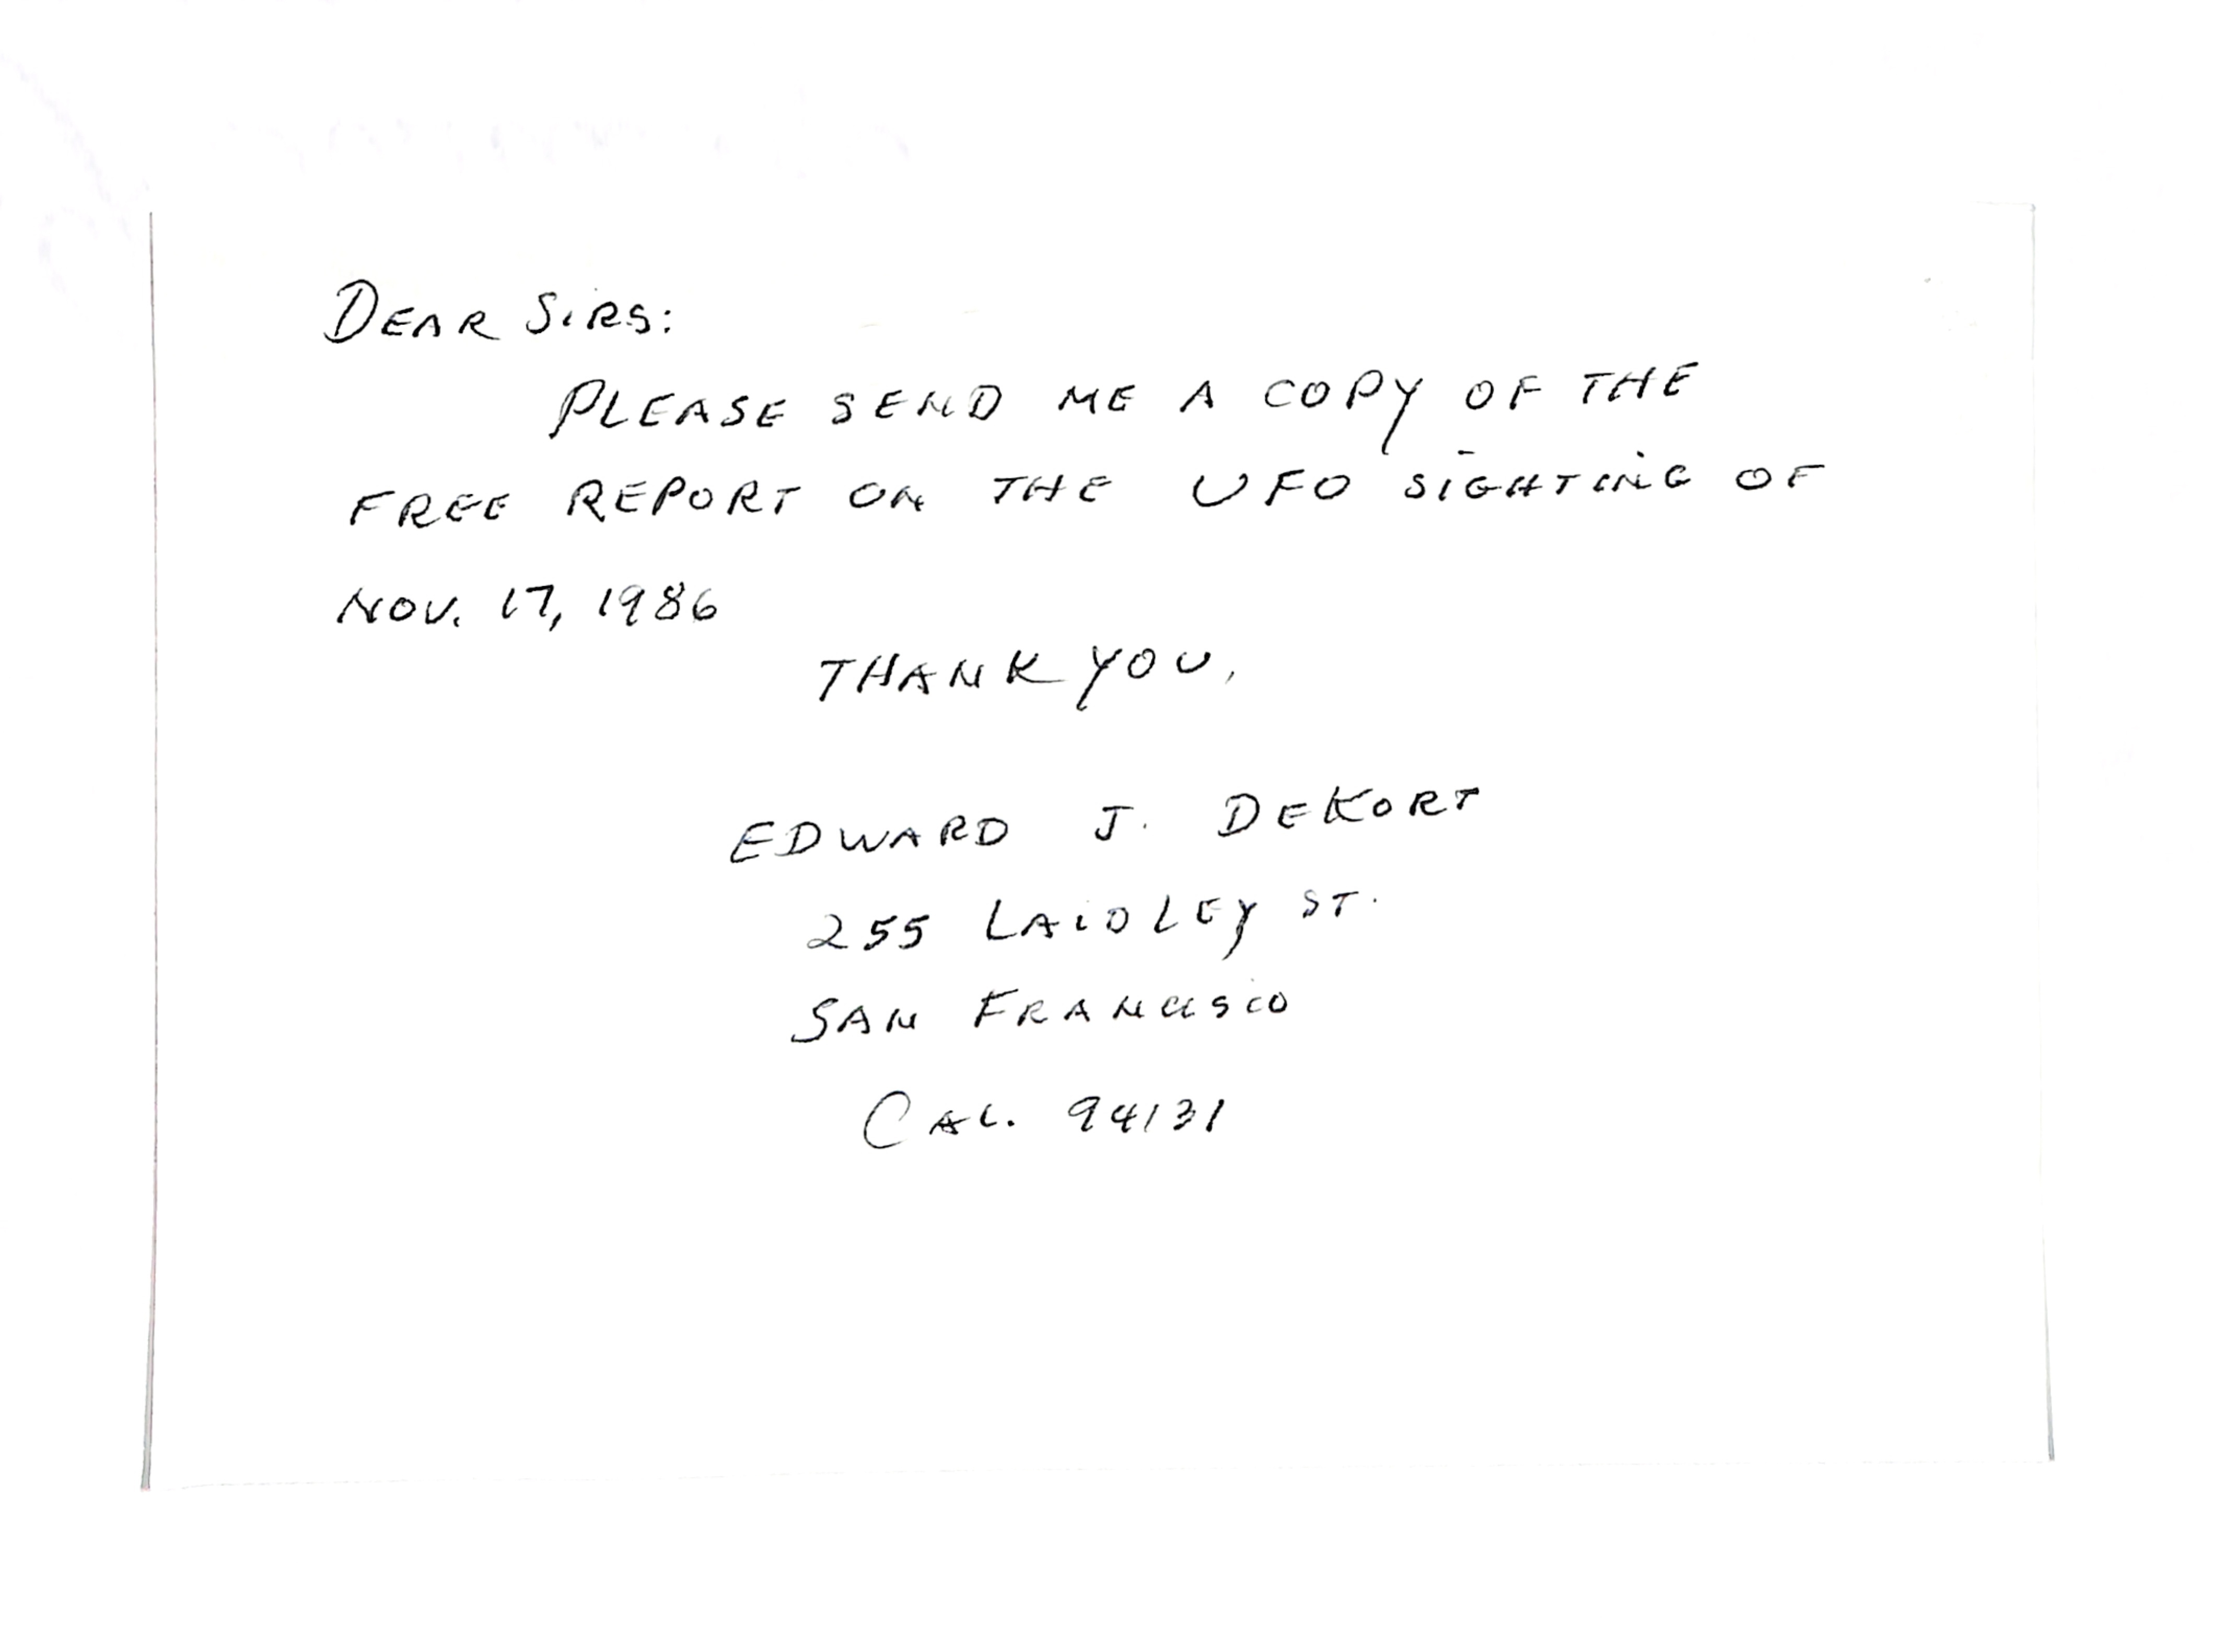 DEAR SIRS:
PLEASE SEND ME A COPY OF THE
FREE REPORT ON THE UFO SIGHTING OF
NOV. 17, 1986
THANK YOU,
EDWARD J. DEKORT
255 LAIDLEY ST.
SAN FRANCISCO
CAL. 94131